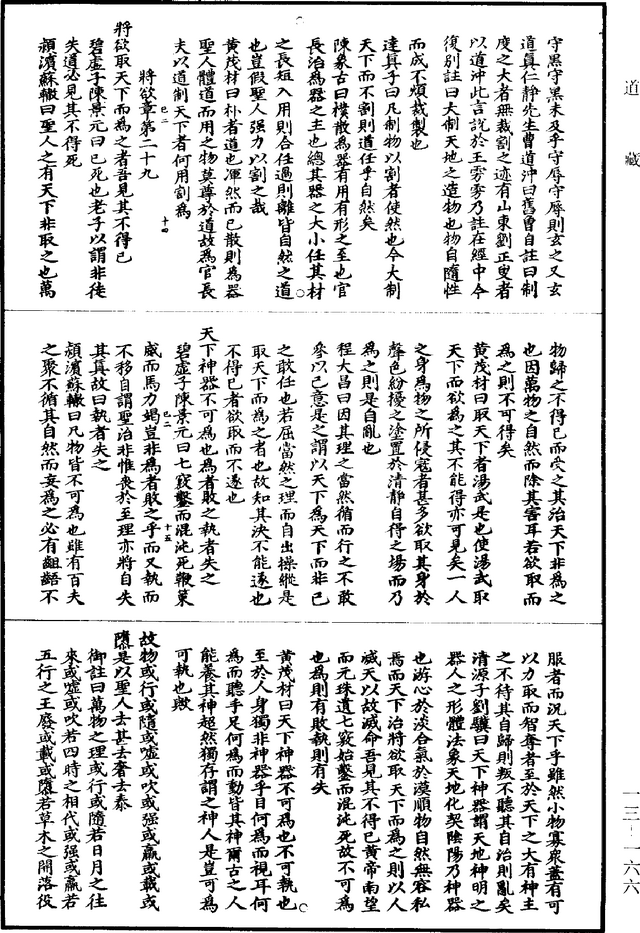 道藏
守黑守黑未及乎守辱守辱則玄之又玄
道真仁靜先生曹道沖曰舊曾自註曰制
度之大者無裁割之迹有山東劉正叟者
以道沖此言說於王雱雱乃註在經中今
復別註曰大制天地之造物也物自隨性
而成不煩裁製也
達真子曰凡制物以割者使然也今大制
天下而不割則道任乎自然矣
陳象古曰樸散為器有用有形之至也官
長治為器之主也總其器之大小任其材
之長短入用則合任過則離皆自然之道
也豈假聖人強力以割之哉
黃茂材曰朴者道也渾然而已散則為器
聖人體道而用之物莫尊於道故為官長
夫以道制天下者何用割為
已二
十四
將欲章第二十九
將欲取天下而為之者吾見其不得已
碧虛子陳景元曰已死也老子以謂非徒
失道必見其不得死
潁濱蘇轍曰聖人之有天下非取之也萬
物歸之不得已而受之其治天下非為之
也因萬物之自然而除其害耳若欲取而
為之則不可得矣
黃茂材曰取天下者湯武是也使湯武取
天下而欲為之其不能得亦可見矣一人
之身為物之所侵寇者甚多欲取其身於
聲色紛擾之塗置於清靜自得之場而乃
為之則是自亂也
程大昌曰因其理之當然循而行之不敢
參以己意是之謂以天下為天下而非己
之敢任也若屈當然之理而自出操縱是
取天下而為之者也故知其決不能遂也
不得已者欲取而不遂也
天下神器不可為也為者敗之執者失之
碧虛子陳景元曰七竅鑿而混沌死鞭策
威而馬力竭豈非為者敗之乎而又執而
已二
十五
不移自謂聖治非惟喪於至理亦將自失
其真故曰執者失之
潁濱蘇轍曰凡物皆不可為也雖有百夫
之聚不循其自然而妄為之必有齟齬不
服者而況天下乎雖然小物寡衆蓋有可
以力取而智奪者至於天下之大有神主
之不待其自歸則叛不聽其自治則亂矣
清源子劉驥曰天下神器謂天地神明之
器人之形體法象天地化契陰陽乃神器
也游心於淡合氣於漠順物自然無容私
焉而天下治將欲取天下而為之則以人
滅天以故滅命吾見其不得已黃帝南望
而元珠遺七竅始鑿而混沌死故不可為
也為則有敗執則有失
黃茂材曰天下神器不可為也不可執也
至於人身獨非神器乎目何為而視耳何
為而聽手足何為而動皆其神爾古之人
能養其神超然獨存謂之神人是豈可為
可執也歟
故物或行或隨或噓或吹或强或羸或載或
隳是以聖人去甚去奢去泰
御註曰萬物之理或行或隨若日月之往
來或噓或吹若四時之相代或强或羸若
五行之王廢或載或隳若草木之開落役
一三·一六六